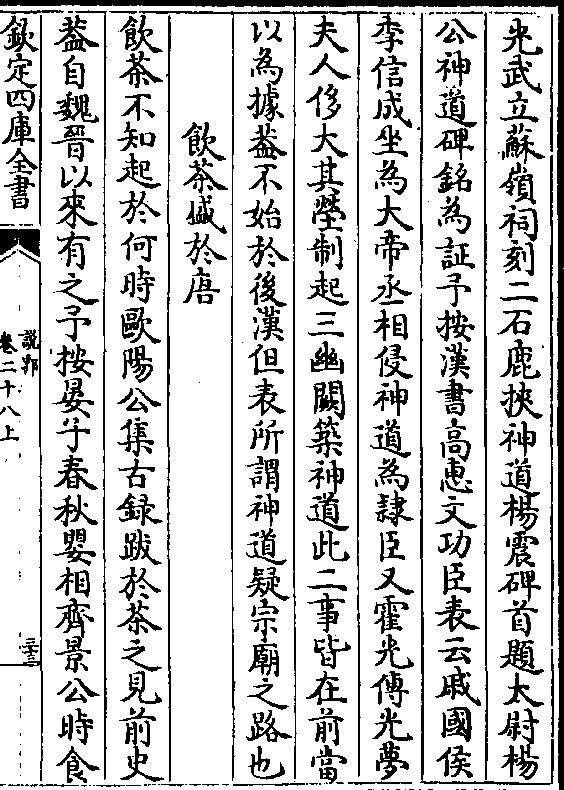 光武立蘇嶺祠刻二石鹿挾神道楊震碑首題太尉楊
公神道碑銘為証予按漢書高惠文功臣表云戚國侯
李信成坐為太帝丞相侵神道為隷臣又霍光傳光夢
夫人侈大其塋制起三幽闕築神道此二事皆在前當
以為據葢不始於後漢但表所謂神道疑宗廟之路也
飲茶盛於唐
飲茶不知起於何時歐陽公集古録跋於茶之見前史
葢自魏晉以來有之予按晏子春秋嬰相齊景公時食
欽定四庫全書
說郛
卷二十八上
三十三